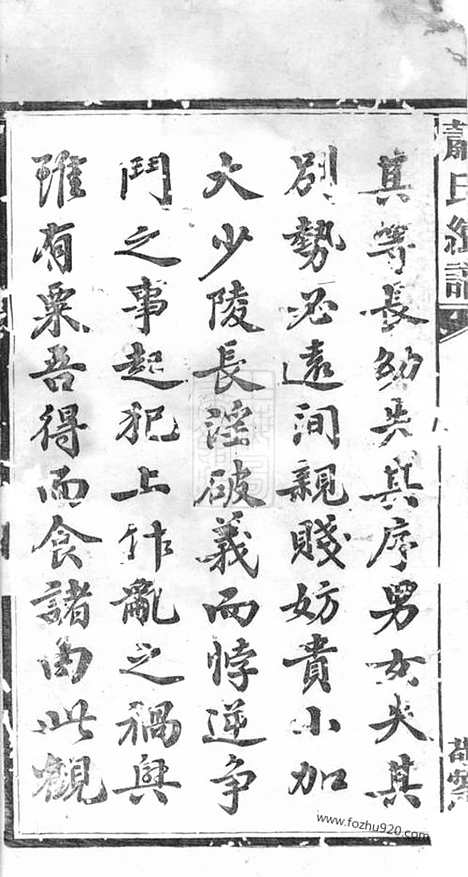 其等長幼失其序男女失其
別勢必遠间親賤妨貴小加
大少陵長淫破義而悖逆争
鬥之事起犯上作亂之禍興
雖有粟吾得而食諸由此觀
氏續譜
www.fozhu920.com